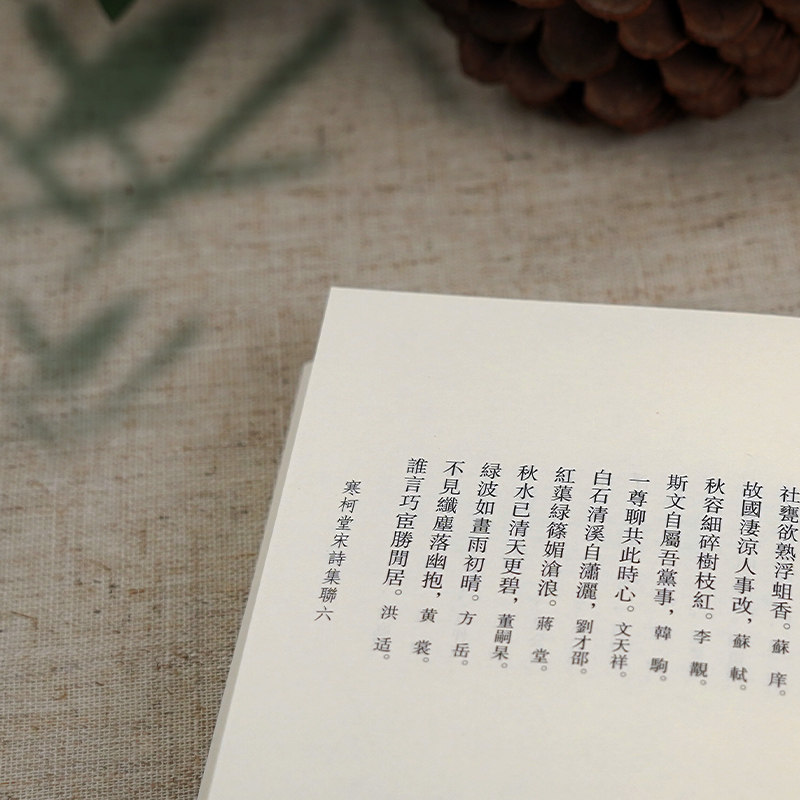 社甕欲熟浮蛆香。蘇庠。
故國淒涼人事改，蘇軾。
秋容細碎樹枝紅。李觀。
斯文自屬吾黨事，韓駒。
一尊聊共此時心。文天祥。
白石清溪自瀟灑，劉才邵。
紅蕖緑篠媚滄浪。蔣堂。
秋水已清天更碧，董嗣杲。
緑波如畫雨初晴。方岳。
不見纖塵落幽抱，黃裳。
誰言巧宦勝閒居。洪适。
寒柯堂宋詩集聯六